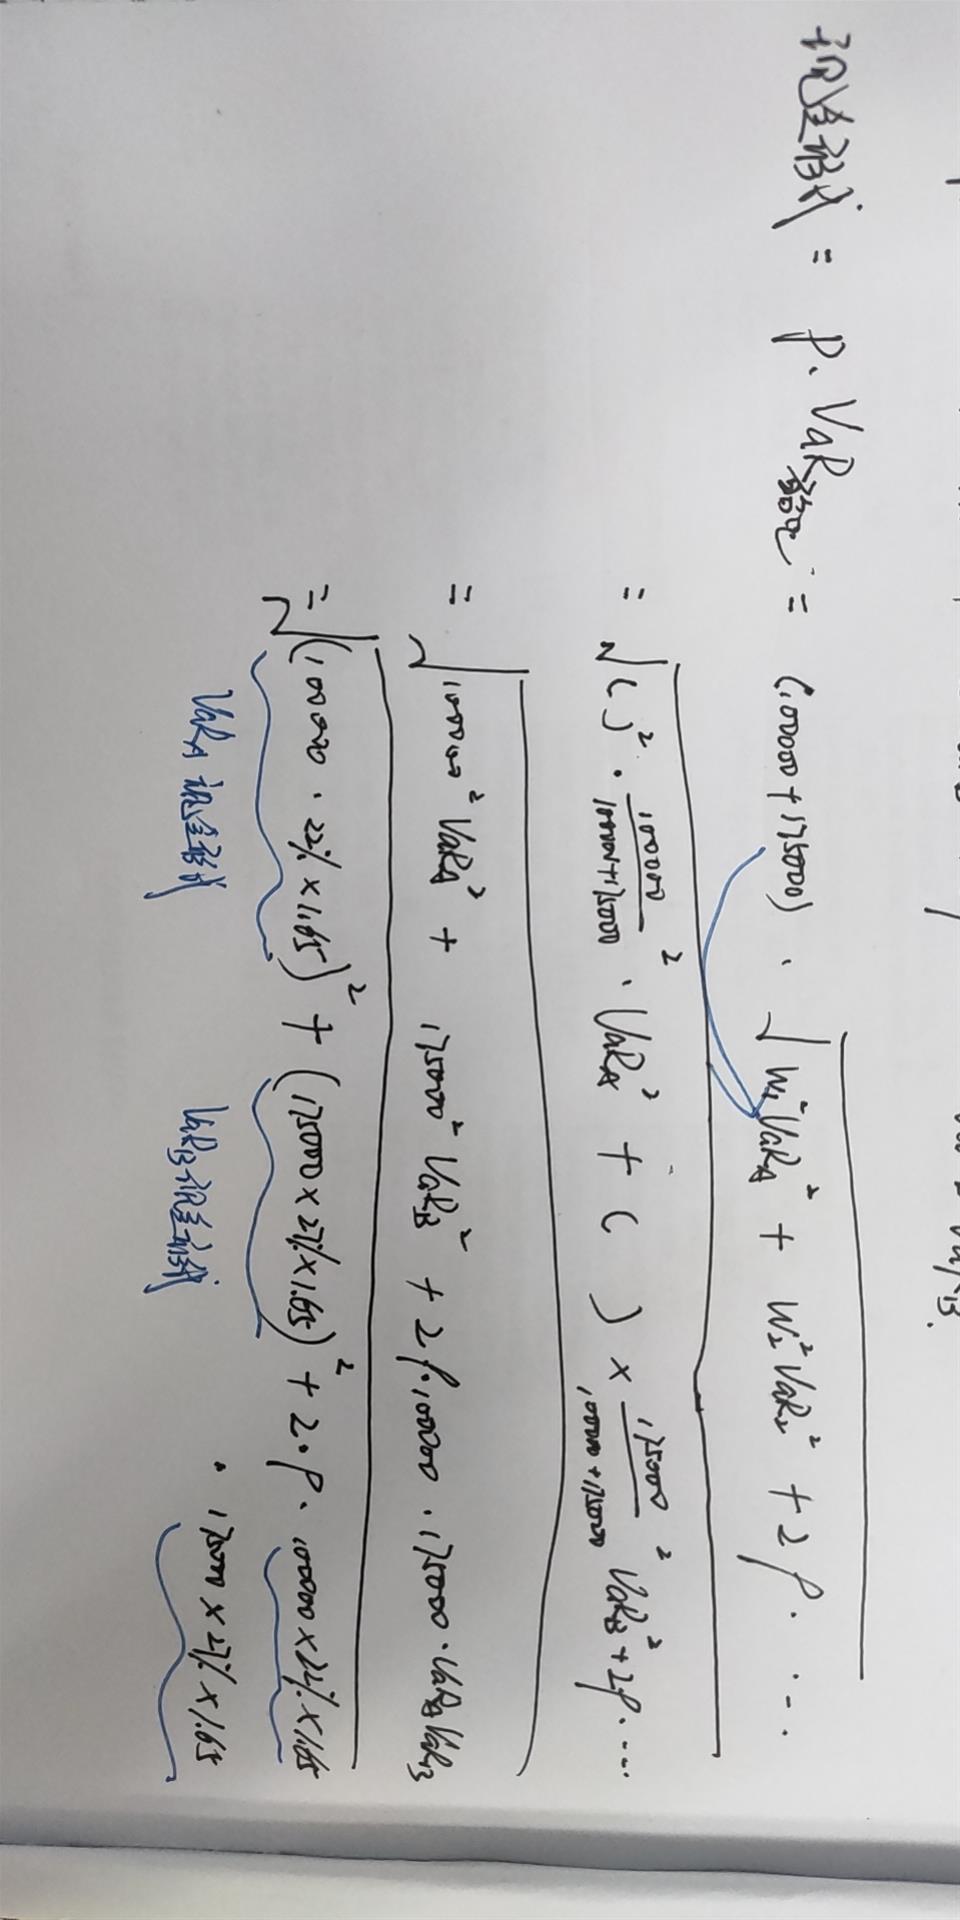 现金形式 = P. VaR组合 = (100000+175000) · √w₁²VaR_A² + w₂²VaR₂² + 2ρ. ...
= √( )² · 100000/100000+175000 ² · VaR_A² + ( ) × 175000/100000+175000 ² VaR_B² + 2ρ. ...
= √100000² VaR_A² + 175000² VaR_B² + 2ρ.100000 . 175000 . VaR_A VaR_B
= √(100000 . 22% × 1.65)² + (175000 × 27% × 1.65)² + 2.ρ. 100000 × 22% × 1.65
. 175000 × 27% × 1.65
VaR_A 现金形式
VaR_B 现金形式